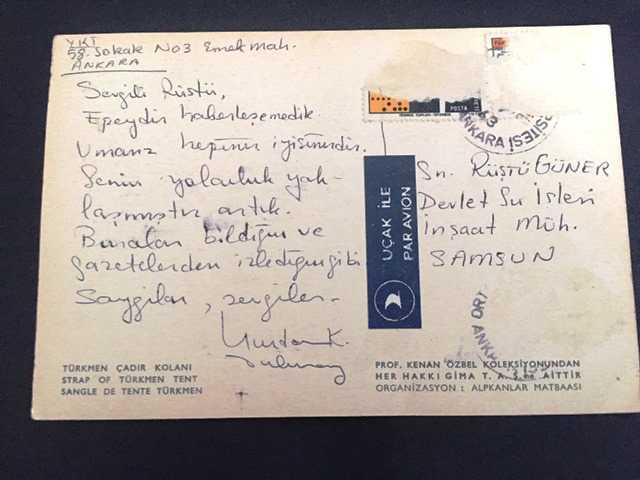 YKT
58. Sokak No 3 Emek mah.
ANKARA
Sevgili Rüştü,
Epeydir haberleşemedik.
Umarız hepiniz iyisinizdir.
Senin yolculuk yak-
laşmıştır artık.
Buraları bildiğin ve
gazetelerden izlediğin gibi
Saygılar, sevgiler.
K.
TÜRKMEN ÇADIR KOLANI
STRAP OF TÜRKMEN TENT
SANGLE DE TENTE TÜRKMEN
UÇAK İLE
PAR AVION
POSTA
ANKARA
Sn. RÜŞTÜ GÜNER
Devlet Su İşleri
İnşaat Müh.
SAMSUN
PROF. KENAN ÖZBEL KOLEKSİYONUNDAN
HER HAKKI GİMA T. A. Ş. ne AİTTİR
ORGANİZASYON : ALPKANLAR MATBAASI